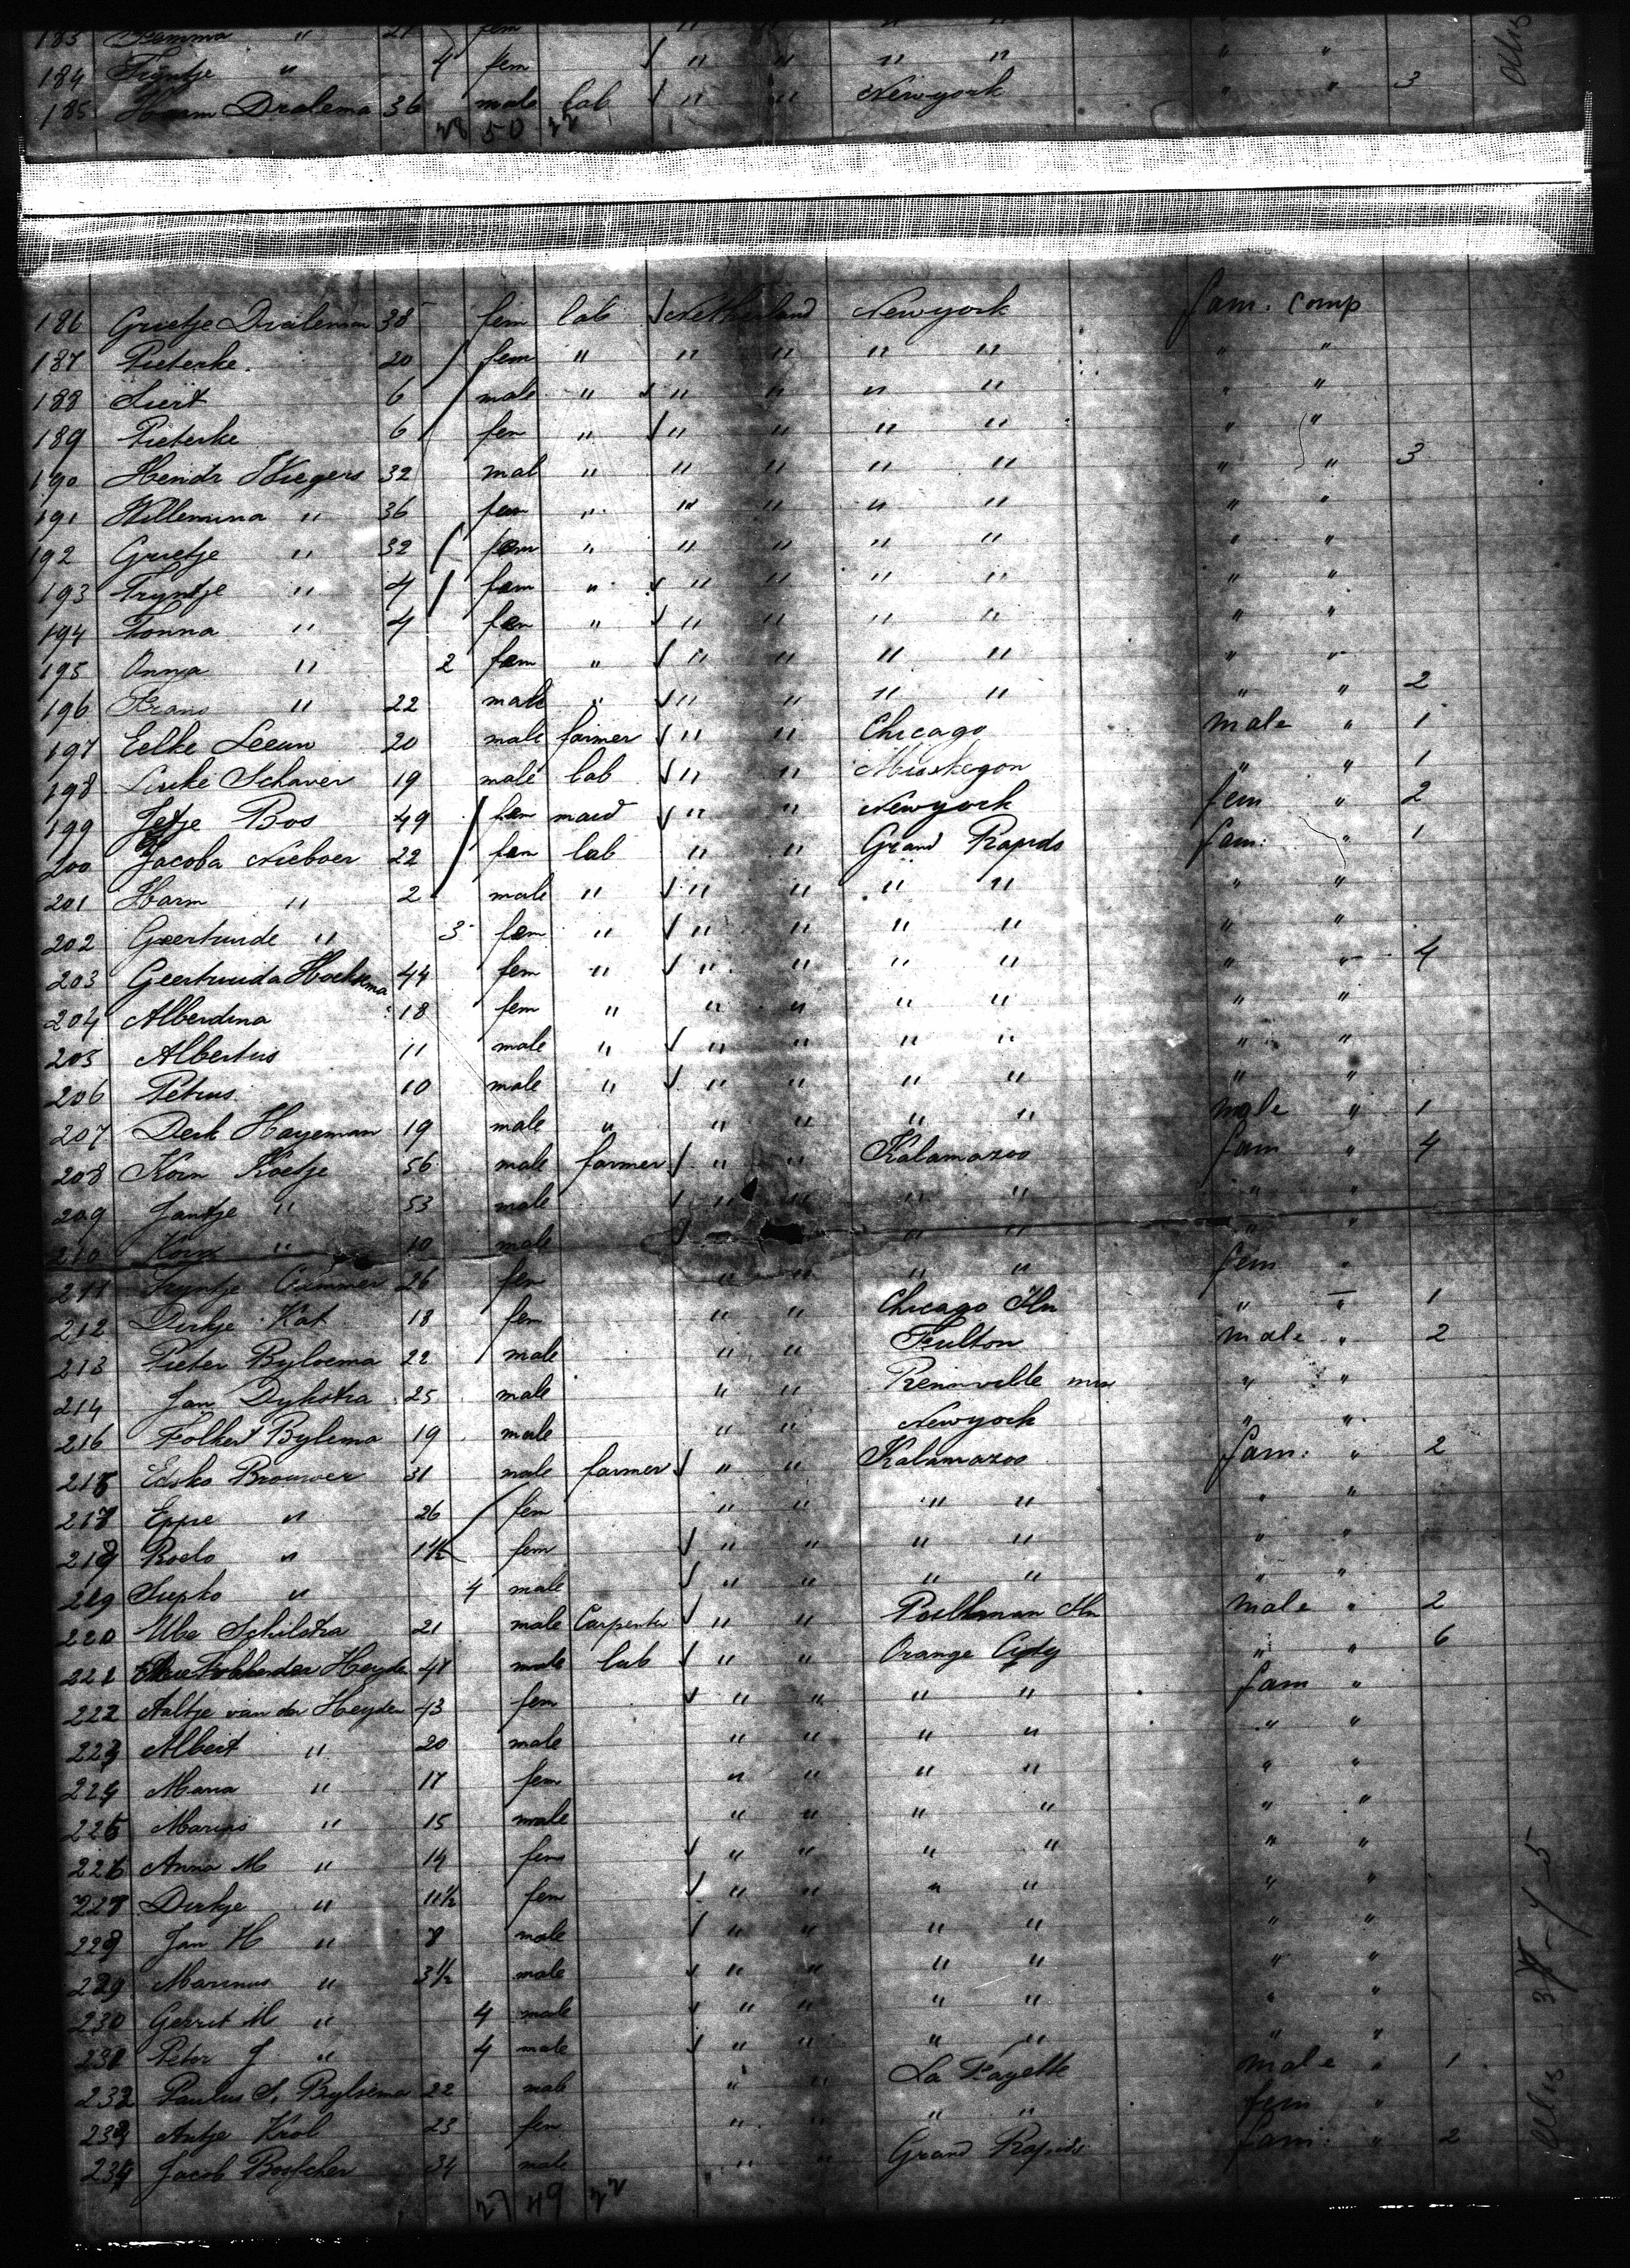 183 Femma " 21 fem " " " " " "
184 Tryntje " 4 fem " " " " " "
185 Harm Dralema 36 male lab " " Newyork " " 3
28 50 22
186 Grietje Dralema 38 fem lab Netherland Newyork fam. comp
187 Pieterke 20 fem " " " " " " "
188 Siert 6 male " " " " " " "
189 Pieterke 6 fem " " " " " " "
190 Hendr Wiegers 32 mal " " " " " " " 3
191 Willemina " 36 fem " " " " " " "
192 Grietje " 32 fem " " " " " " "
193 Tryntje " 4 fem " " " " " " "
194 Tonna " 4 fem " " " " " " "
195 Anna " 2 fem " " " " " " "
196 Frans " 22 male " " " " " " " 2
197 Eelke Leeuw 20 male farmer " " Chicago male " 1
198 Luike Schaver 19 male lab " " Muskegon " " 1
199 Jetje Bos 49 fem maid " " Newyork fem " 2
200 Jacoba Nieboer 22 fem lab " " Grand Rapids fam: " 1
201 Harm " 2 male " " " " " " "
202 Geertruide " 3 fem " " " " " " "
203 Geertruida Hoeksma 44 fem " " " " " " " 4
204 Alberdina 18 fem " " " " " " "
205 Albertus 11 male " " " " " " "
206 Petrus 10 male " " " " " " "
207 Derk Hayeman 19 male " " " " " male " 1
208 Korn Koetje 56 male farmer " " Kalamazoo fam " 4
209 Jantje " 53 male " " " " " "
210 Korn " 10 male " " " "
211 Tryntje Cammer 26 fem " " " " fem "
212 Derkje Kat 18 fem " " Chicago Iln " " 1
213 Pieter Byloema 22 male " " Fulton male " 2
214 Jan Dykstra 25 male " " Rennville min " "
216 Folkert Bylema 19 male " " Newyork " "
216 Edsko Brouwer 31 male farmer " " Kalamazoo fam: " 2
217 Eppie " 26 fem " " " " " "
218 Roelo " 1 1/2 fem " " " " " "
219 Siepko " 4 male " " " " " "
220 Ube Schilstra 21 male Carpenter " " Poslhman Iln male " 2
221 Heyden 48 male lab " " Orange City " " 6
222 Aaltje van der Heyden 43 fem " " " " fam "
223 Albert " 20 male " " " " " "
224 Maria " 17 fem " " " " " "
225 Marius " 15 male " " " " " "
226 Anna M " 14 fem " " " " " "
227 Dirkje " 11 1/2 fem " " " " " "
228 Jan H " 8 male " " " " " "
229 Marinus " 3 1/2 male " " " " " "
230 Gerrit M " 4 male " " " " " "
231 Peter J " 4 male " " " " " "
232 Paulus S. Bylsema 22 male " " La Fayette male " 1
233 Antje Krol 23 fem " " " " fem "
234 Jacob Bostcher 34 male " " Grand Rapids fam: " 2
27 49 22